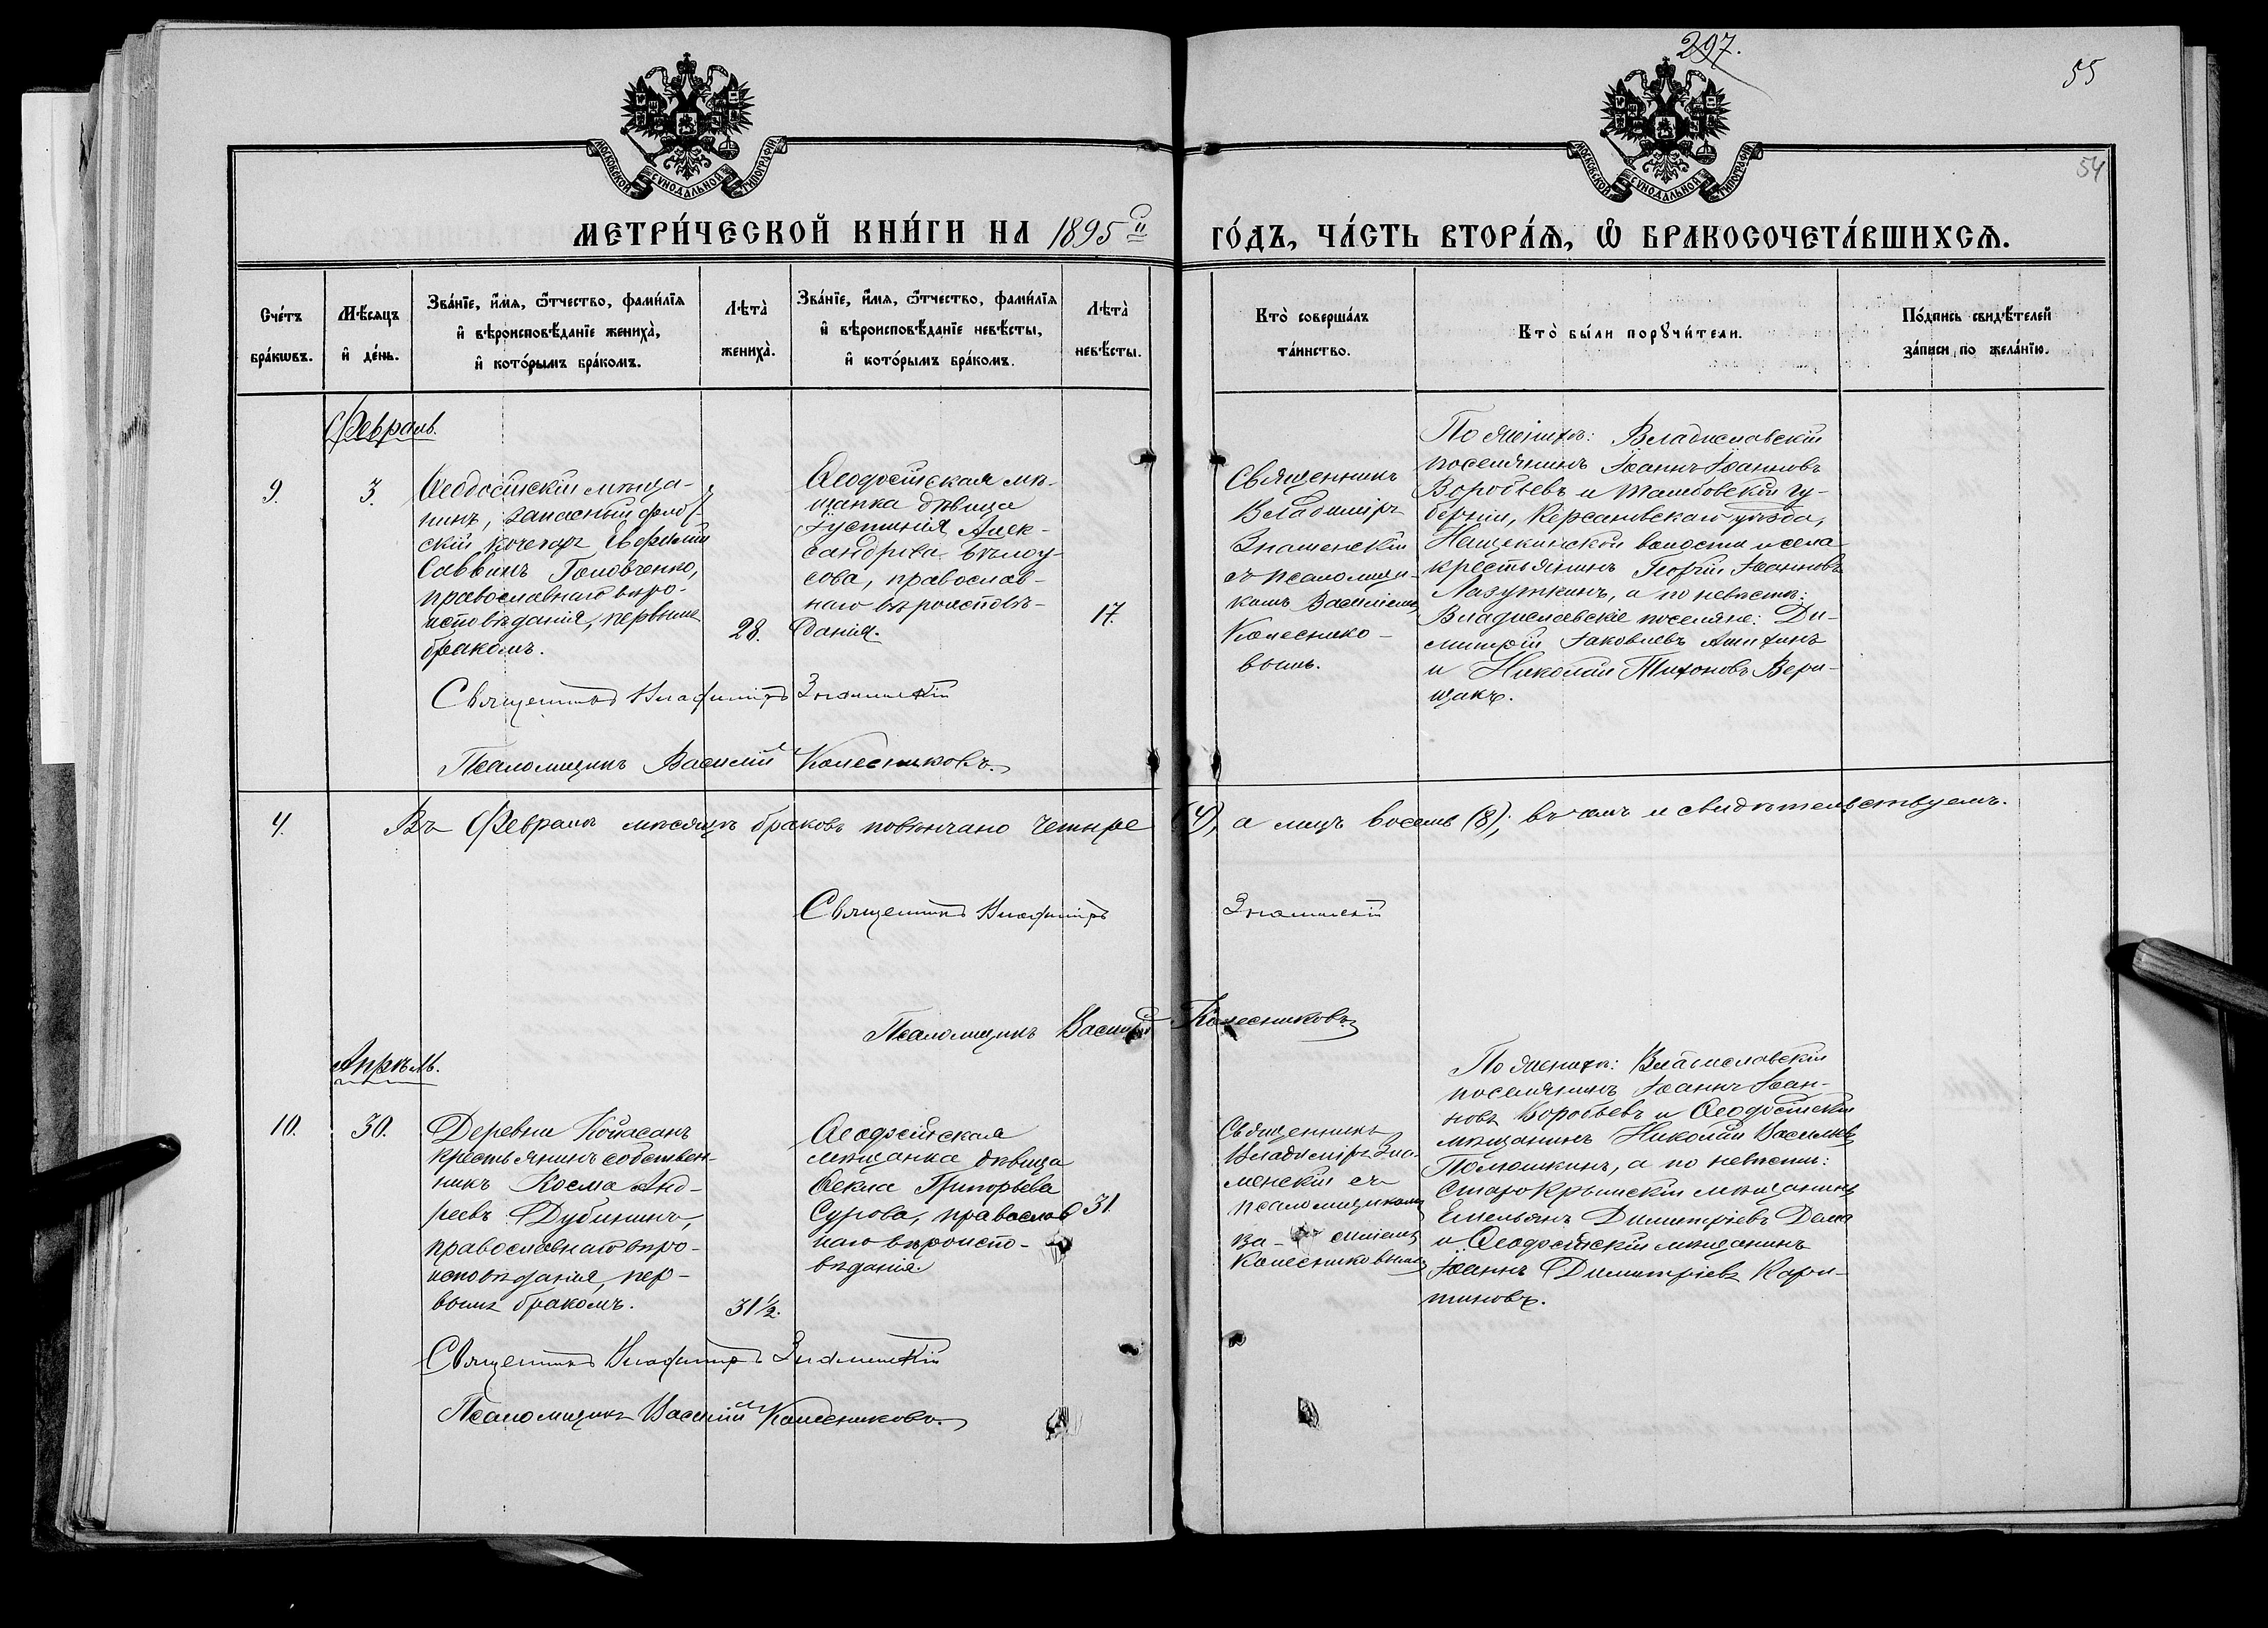 297.
55
54
МОСКОВСКОЙ СѴНОДАЛЬНОЙ ТИПОГРАФІИ
МОСКОВСКОЙ СѴНОДАЛЬНОЙ ТИПОГРАФІИ
МЕТРИ́ЧЕСКОЙ КНИ́ГИ НА 1895й ГО́ДЪ, ЧА́СТЬ ВТОРА́Ѧ, Ѡ БРАКОСОЧЕТА́ВШИХСѦ.
Сче́тъ
бра́кѡвъ.
Мѣ́сяцъ
и҆ де́нь.
Зва́нїе, и҆́мѧ, ѻ҆́тчество, фами́лїѧ
и҆ вѣроисповѣ́данїе жениха̀,
и҆ кото́рымъ бра́комъ.
Лѣта̀
жениха̀.
Зва́нїе, и҆́мѧ, ѻ҆́тчество, фами́лїѧ
и҆ вѣроисповѣ́данїе невѣ́сты,
и҆ кото́рымъ бра́комъ.
Лѣта̀
невѣ́сты.
Кто̀ соверша́лъ
та́инство.
Кто̀ бы́ли порꙋчи́тели.
По́дпись свидѣ́телей
за́писи по жела́нїю.
Февраль.
9.
3.
Ѳеодосійскій мѣща-
нинъ, запасный флот-
скій кочегаръ Евфимій
Саввинъ Головченко,
православнаго вѣро-
исповѣданія, первымъ
бракомъ.
28.
Ѳеодосійская мѣ-
щанка дѣвица
Іустинія Алек-
сандрова Бѣлоу-
сова, православ-
наго вѣроисповѣ-
данія.
17.
Священникъ
Владиміръ
Знаменскій
съ псаломщи-
комъ Василіемъ
Колеснико-
вымъ.
По женихѣ: Владиславскій
поселянинъ Іоаннъ Іоанновъ
Воробьевъ и Тамбовской гу-
берніи, Керсановскаго уѣзда,
Нащекинской волости и села
крестьянинъ Георгій Іоанновъ
Лазуткинъ, а по невѣстѣ:
Владиславскіе поселяне: Ди-
митрій Іаковлевъ Анихинъ
и Николай Тихоновъ Вери-
щакъ.
Священникъ Владиміръ Знаменскій
Псаломщикъ Василій Колесниковъ.
4.
Въ Февралѣ мѣсяцѣ браковъ повѣнчано четыре (4), а лицъ восемь (8); въ чемъ и свидѣтельствуемъ.
Священникъ Владиміръ Знаменскій
Псаломщикъ Василій Колесниковъ
Апрѣль.
10.
30.
Деревни Койасанъ
крестьянинъ собствен-
никъ Косма Анд-
реевъ Дубининъ,
православнаго вѣро-
исповѣданія, пер-
вымъ бракомъ.
31½.
Ѳеодосійская
мѣщанка дѣвица
Ѳекла Григорьева
Сурова, православ-
наго вѣроиспо-
вѣданія.
31.
Священникъ
Владиміръ Зна-
менскій съ
псаломщикомъ
Ва- силіемъ
Колесниковымъ
По женихѣ: Владиславскій
поселянинъ Іоаннъ Іоан-
новъ Воробьевъ и Ѳеодосійскій
мѣщанинъ Николай Васильевъ
а по невѣстѣ:
Старокрымскій мѣщанинъ
Емельянъ Димитріевъ Дема
и Ѳеодосійскій мѣщанинъ
Іоаннъ Димитріевъ Хари-
тиновъ.
Священникъ Владиміръ Знаменскій
Псаломщикъ Василій Колесниковъ.